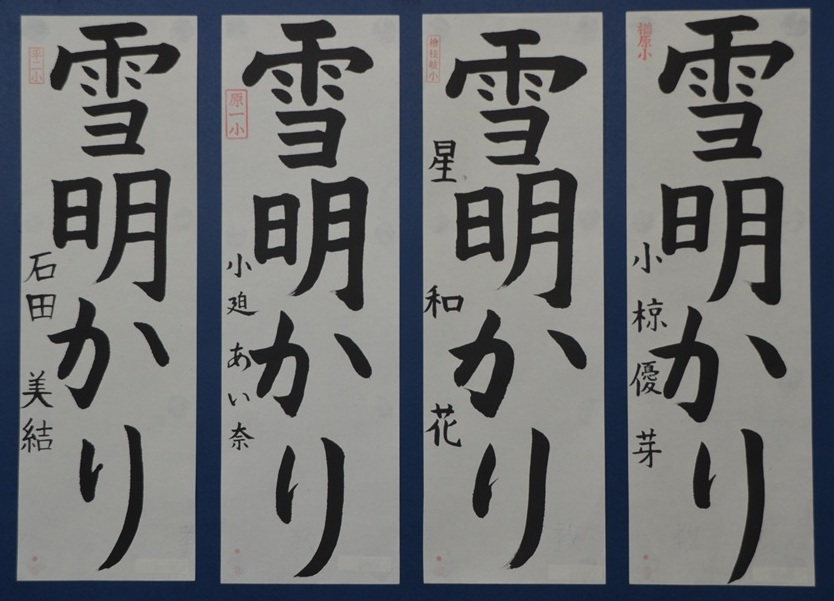 雪明かり
石田 美結
雪明かり
原一小
小迫 あい奈
雪明かり
檜枝岐小
星 和花
雪明かり
檜原小
小椋優芽